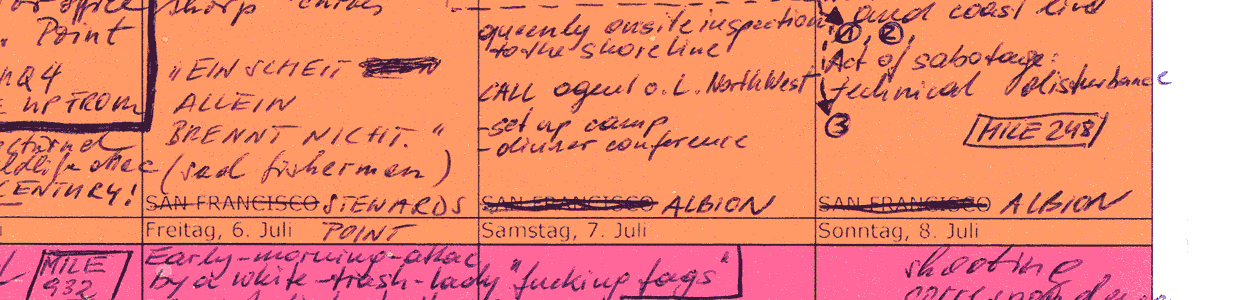 or office
. Point
nQ4
E UP FROM
esturned
ENTURY!
sharp curves
"EIN SCHEIT
ALLEIN
BRENNT NICHT."
(sad fishermen)
SAN FRANCISCO STEWARDS
Freitag, 6. Juli POINT
queenly onsite inspection
to the shoreline
CALL agent o. L. NorthWest
-set up camp
-dinner conference
SAN FRANCISCO ALBION
Samstag, 7. Juli
and coast line
1, 2,
Act of sabotage:
technical disturbance
3
MILE 248
SAN FRANCISCO ALBION
Sonntag, 8. Juli
MILE
932
Early-morning-attac
by a white-trash-lady "fucking fags"
shooting